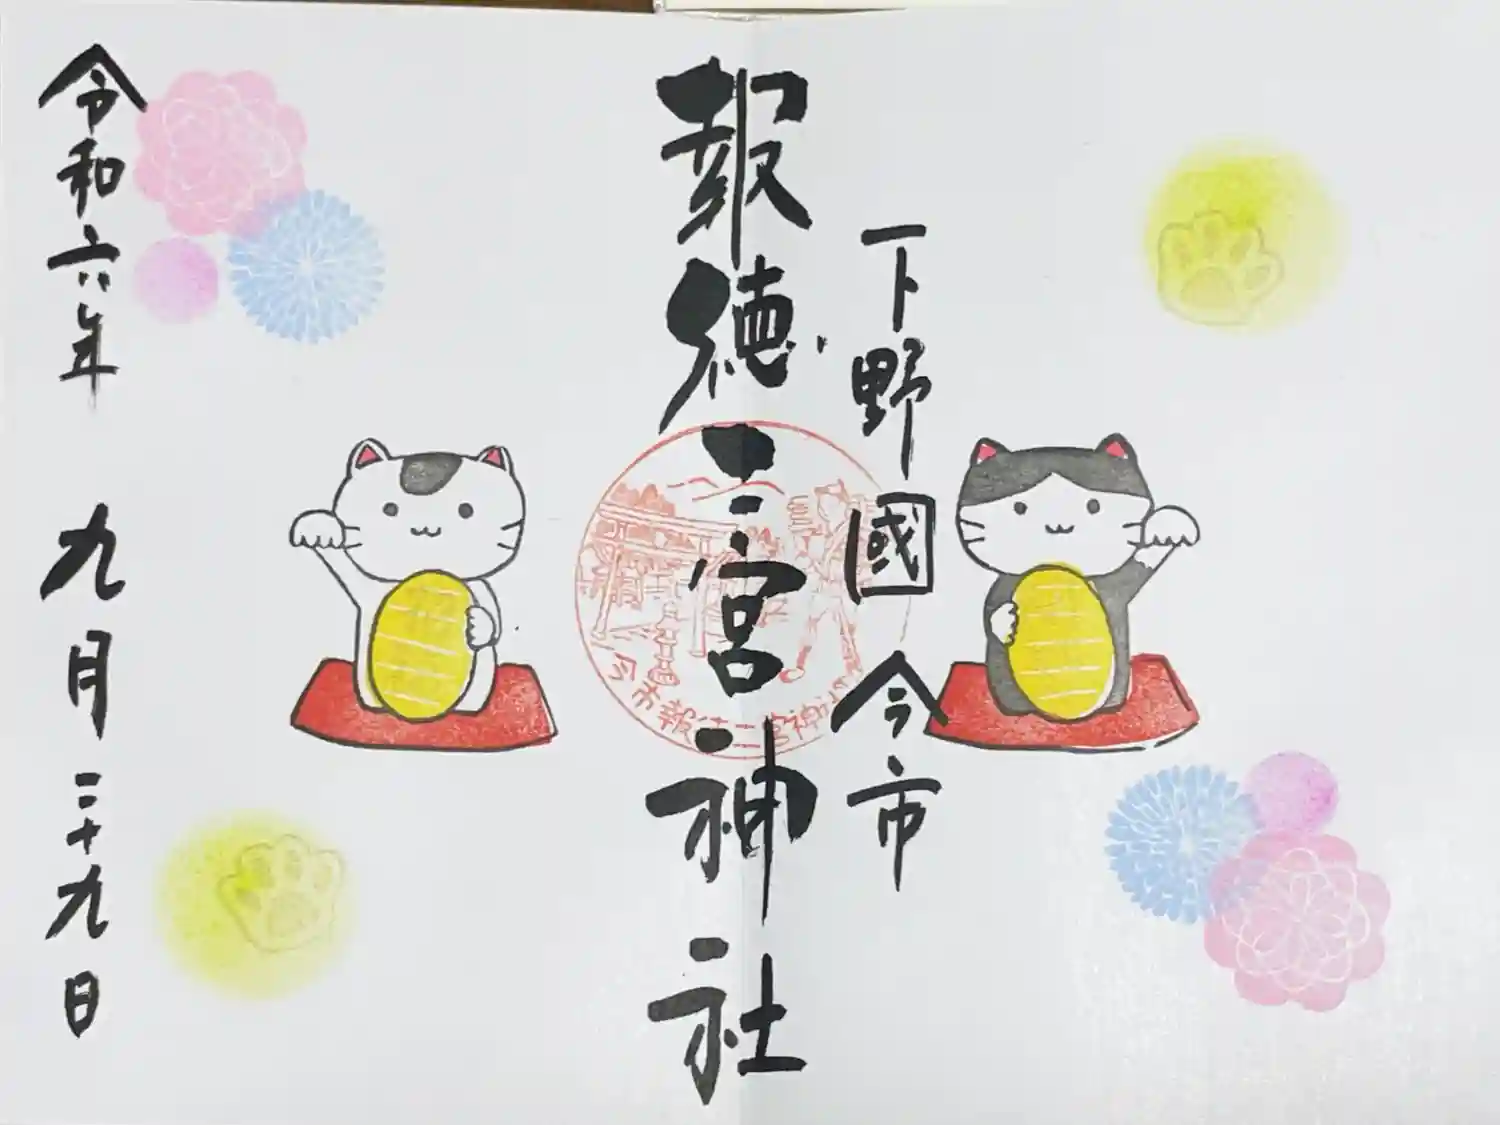 下野國 今市
報徳二宮神社
今市報徳二宮神社
令和六年 九月二十九日